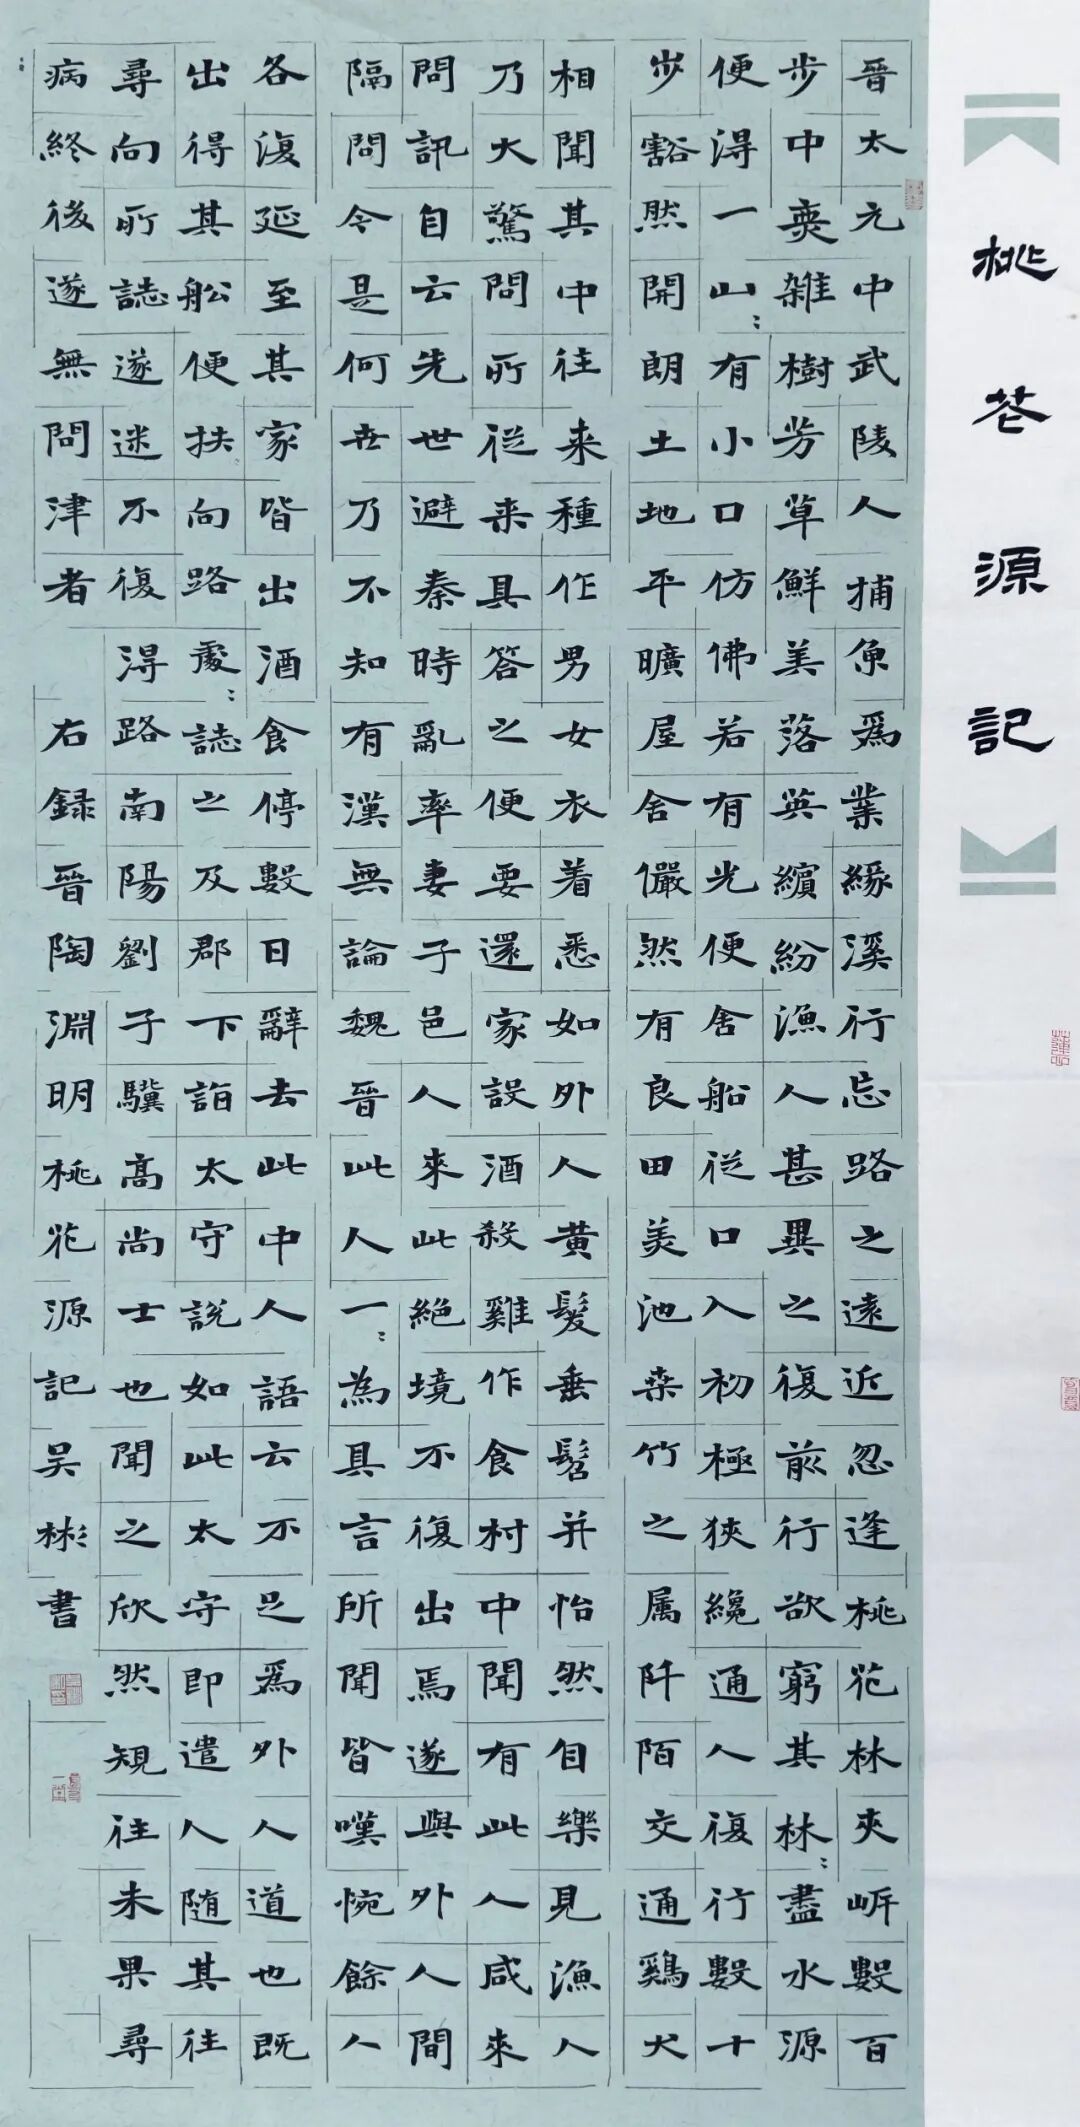 桃花源記
晉太元中武陵人捕魚爲業緣溪行忘路之遠近忽逢桃花林夾岸數百
步中無雜樹芳草鮮美落英繽紛漁人甚異之復前行欲窮其林〻盡水源
便得一山〻有小口仿佛若有光便舍船從口入初極狹纔通人復行數十
步豁然開朗土地平曠屋舍儼然有良田美池桑竹之属阡陌交通鷄犬
相聞其中往来種作男女衣着悉如外人黄髮垂髫并怡然自樂見漁人
乃大驚問所從来具答之便要還家設酒殺雞作食村中聞有此人咸來
問訊自云先世避秦時亂率妻子邑人來此絕境不復出焉遂與外人間
隔問今是何世乃不知有漢無論魏晉此人一〻為具言所聞皆嘆惋餘人
各復延至其家皆出酒食停數日辭去此中人語云不足爲外人道也既
出得其船便扶向路處〻誌之及郡下詣太守說如此太守即遣人随其往
尋向所誌遂迷不復得路南陽劉子驥高尚士也聞之欣然規往未果尋
病終後遂無問津者 右録晉陶淵明桃花源記吴彬書